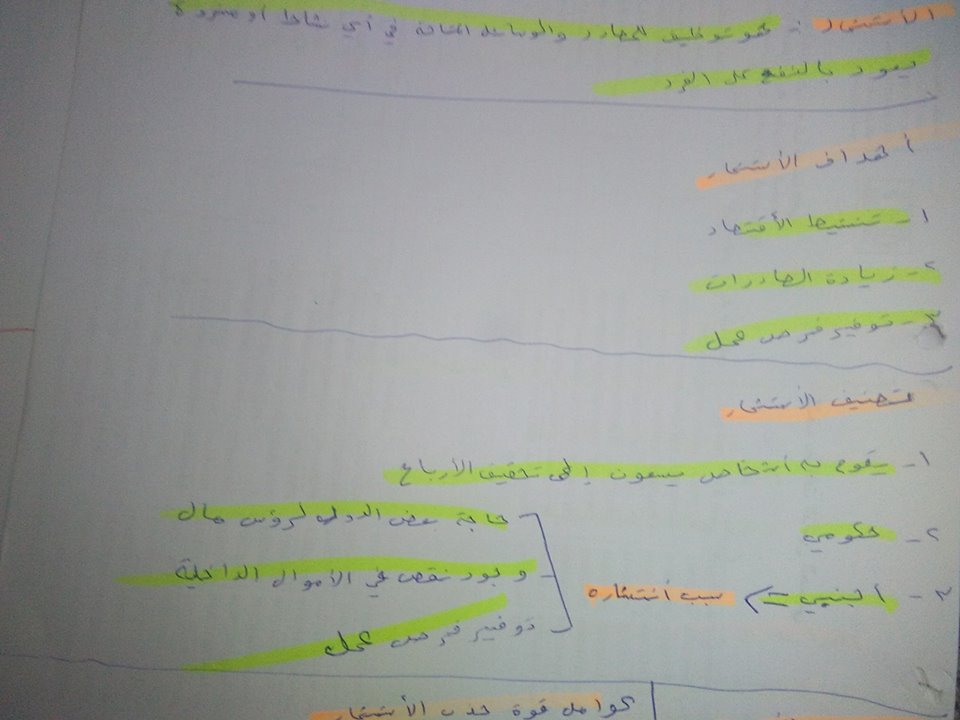 الأستثمار :- هو توظيف المصادر والوسائل المتاحة في أي نشاط أو مشروع
يعود بالنفع على الفرد
أهداف الأستثمار
١- تنشيط الأقتصاد
٢- زيادة الصادرات
٣- توفير فرص عمل
تصنيف الأستثمار
١- يقوم به أشخاص يسعون إلى تحقيق الأرباح
٢- حكومي
٣- أجنبي <= سبب أنتشاره
حاجة بعض الدول لرؤس مال
وجود نقص في الأموال الداخلية
توفير فرص عمل
عوامل قوة جذب الأستثمار